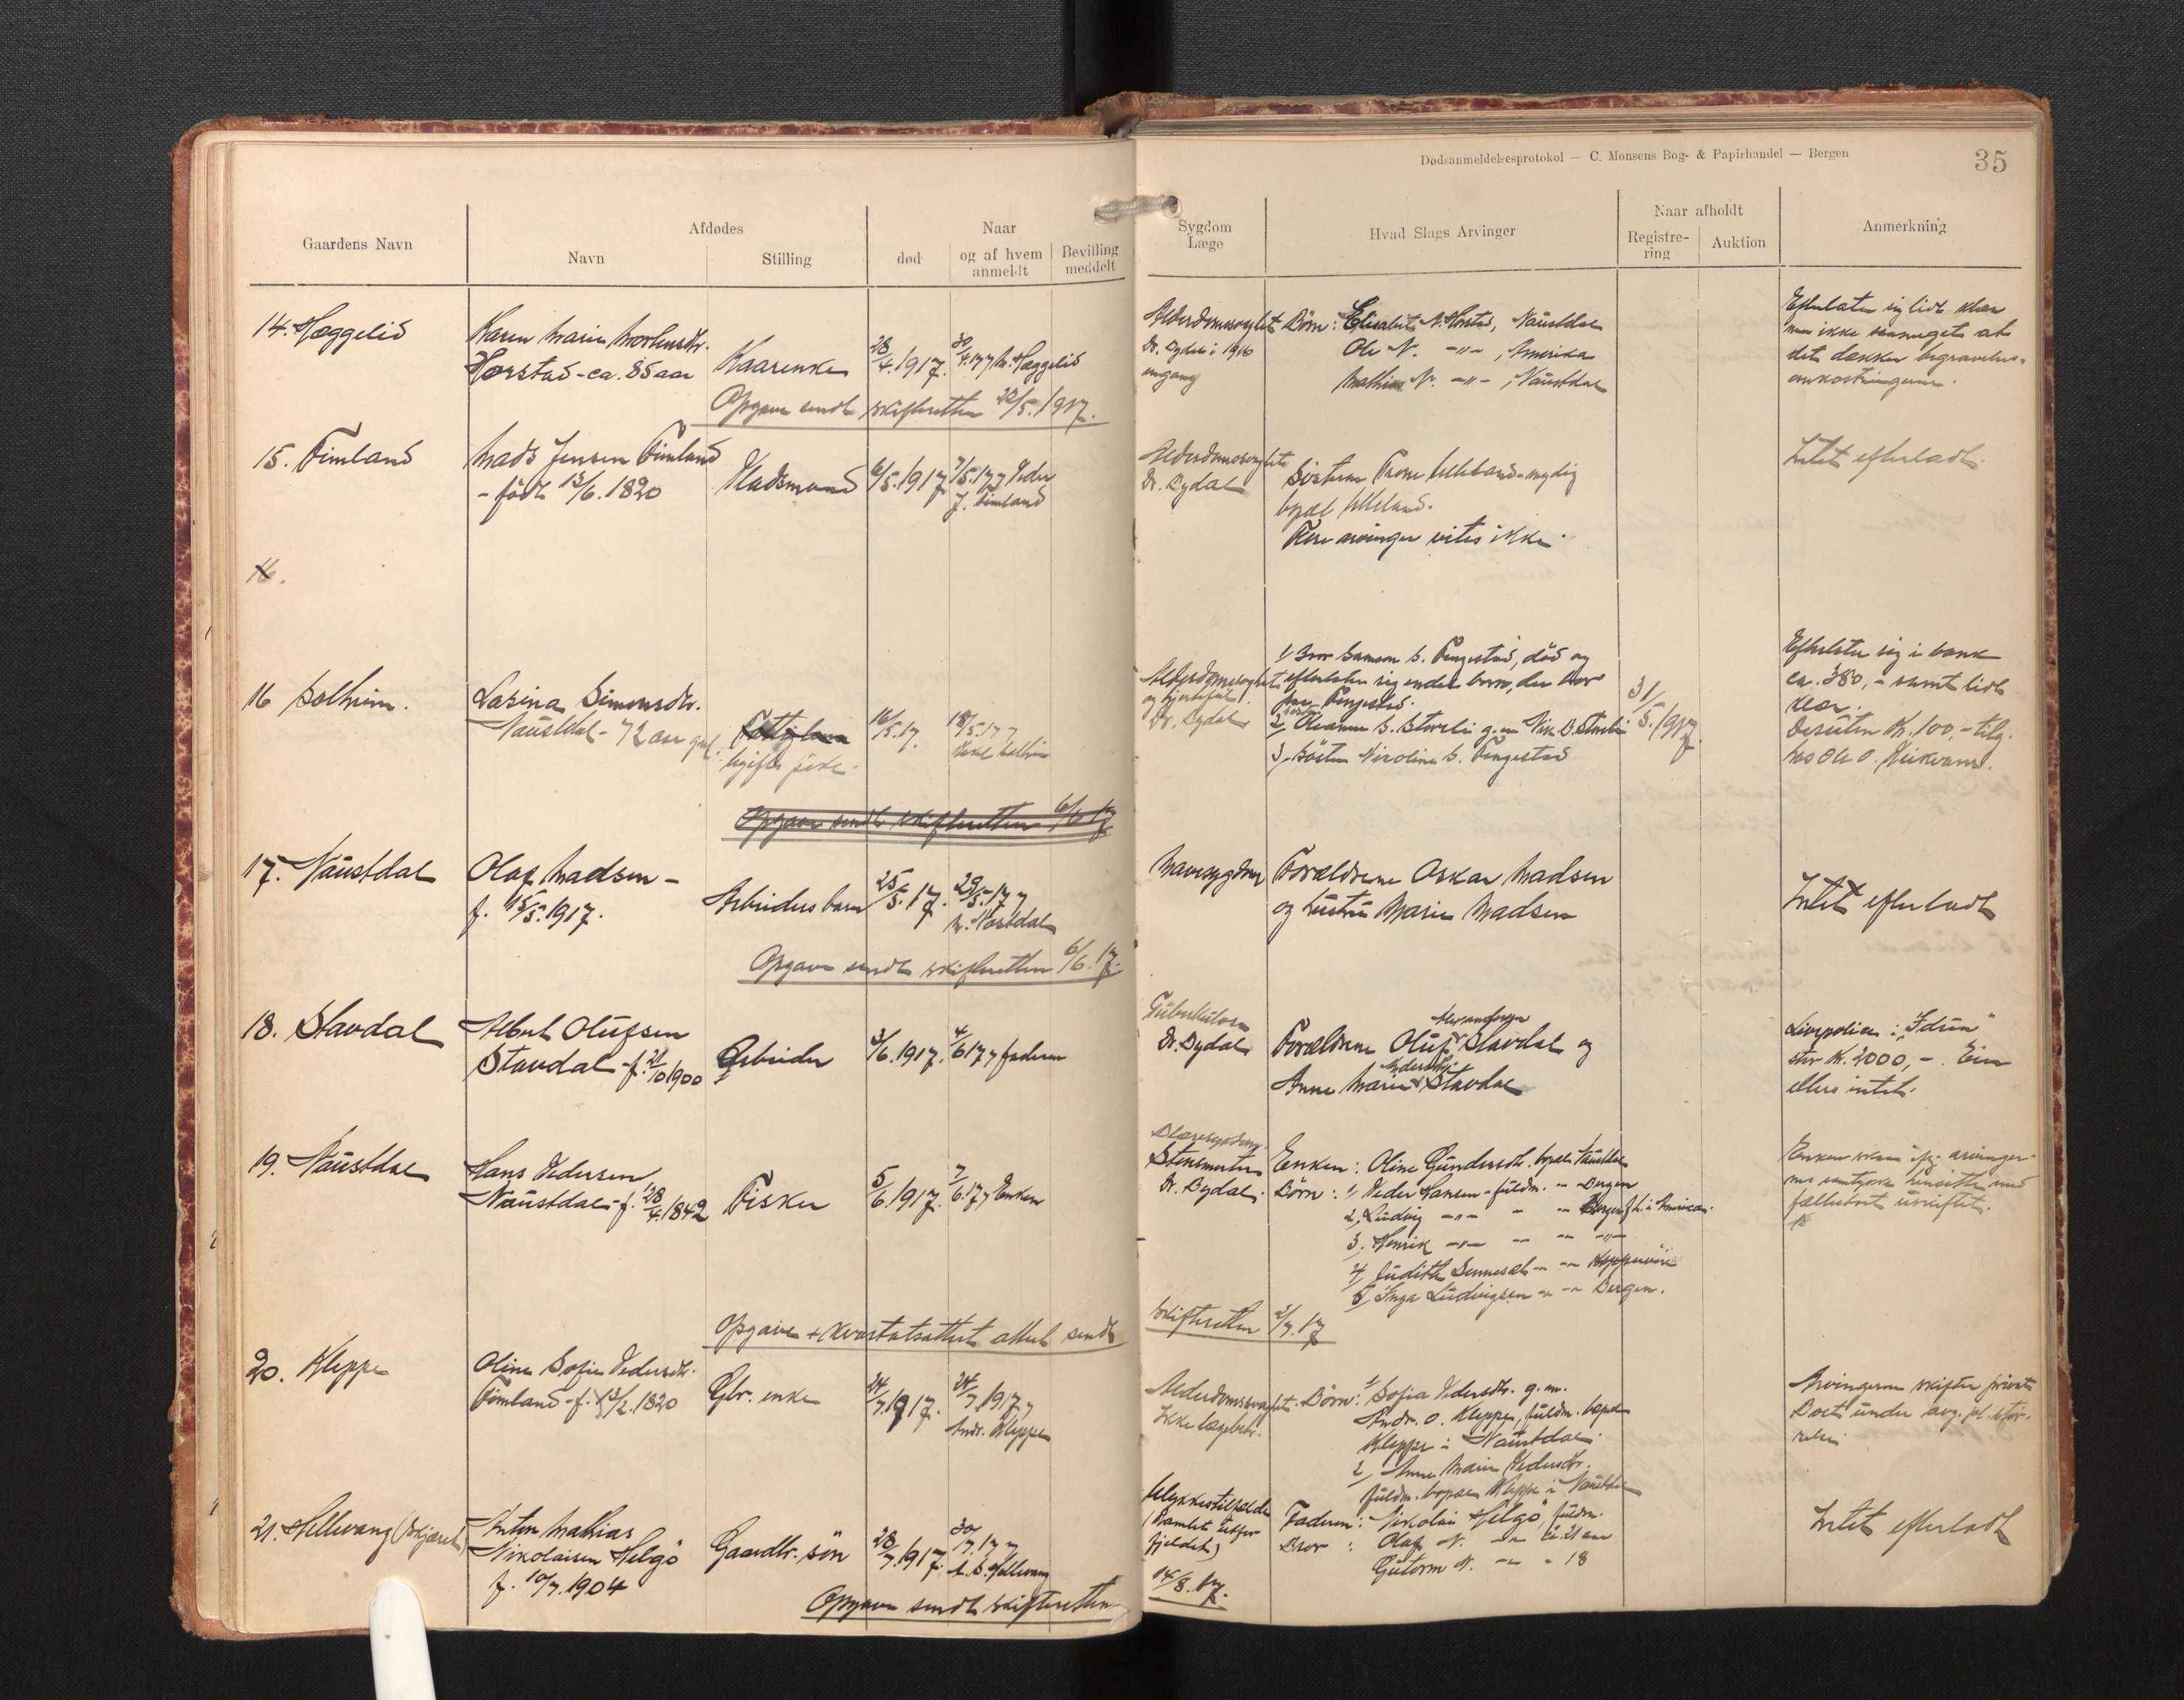 Dødsanmeldelsesprotokol — C. Monsens Bog- & Papirhandel — Bergen
35
Gaardens Navn
Afdødes
Navn
Stilling
Naar
død
og af hvem anmeldt
Bevilling meddelt
Sygdom Læge
Hvad Slags Arvinger
Naar afholdt
Registrering
Auktion
Anmerkning
14. Hæggelid
Karen Marie
Horstad - ca. 85 aar
Kaarenke
28/4.1917.
30/4.17 Hæggelid
Alderdomssvaghet
Dr. Dydal i 1916
engang
Børn: Elisabet N. Horstad, Naustdal
Ole N. -"- , Amerika
Mathias N. -"- , Naustdal
Efterlater sig lidt klær
men ikke saameget at
det dækker begravelses-
omkostningerne.
Opgave sendt skifteretten 22/5.1917.
15. Fimland
Mads Jensen Fimland
- født 13/6.1820
Pladsmand
6/5.1917
7/5.17 Peder
J. Fimland
Alderdomssvaghet
Dr. Dydal
Søsteren
bopæl Ulleland.
Flere arvinger vites ikke.
Intet efterladt.
16.
16 Solheim.
Lasina Simonsdtr.
Naustdal - 72 aar gml.
ugift pike
16/5.17.
18/5.17
Solheim
Alderdomssvaghet
og hjertefeil.
Dr. Dydal
1/ Bror Samson S. Fengestad, død og
efterlater sig endel børn, der bor
paa Fengestad.
2/ Oleanna S. Storeli g.m.
3/ Søster Nikolina S. Fengestad
31/5.1917.
Efterlater sig i bank
ca. 380,- samt lidt
klær.
Desuten Kr. 100,- tilg.
hos Ole O.
Opgave sendt skifteretten 6/6 17
17. Naustdal
Olaf Madsen -
f. 15/5.1917.
Arbeiders barn
25/5.17.
29/5.17
Naustdal
Mavesygdom
Forældrene Oskar Madsen
og hustru Marie Madsen
Intet efterladt
Opgave sendt skifteretten 6/6.17.
18. Stavdal
Albert Olufsen
Stavdal - f. 21/10 1900
Arbeider
3/6.1917.
4/6 17 faderen
Tuberkulose
Dr. Dydal
Forældrene Oluf Stavdal og
Anne Marie Stavdal
Livspolice i "Idun"
stor Kr. 2000,-. Eier
ellers intet.
19. Naustdal
Hans Pedersen
Naustdal - f. 28/4.1842
Fisker
5/6.1917.
7/6.17 Enken
Dr. Dydal.
Enken: Oline Gundersdtr. bopæl Naustdal
Børn: 1/ Peder Hansen - fuldm. -"- Bergen
2/ Ludvig -"- -"- Bergen f.t. i Amerika.
3. Henrik -"- -"- -"-
4/ Judith
5/ Inga Ludvigsen -"- -"- Bergen.
Enken
nes samtykke hensitte med
fællesboet uskiftet.
Opgave + attest sendt
skifteretten 2/7.17
20. Kleppe
Oline Sofie Pedersdtr.
Fimland - f. 13/2.1820
Gbr. enke
24/7.1917.
24/7.1917
Andr. Kleppe
Alderdomssvaghet.
Ikke lægebeh.
Børn: 1/ Sofia Pedersdtr. g.m.
Andr. O. Kleppe, fuldm. bopæl
Kleppe i Naustdal.
2/ Anne Marie Pedersdtr.
fuldm. bopæl Kleppe i Naustdal
Arvingerne skifter privat
Boet under
21. Hellevang (Skjæret)
Anton Mathias
Nikolaisen Helgø
f. 10/7.1904
Gaardbr. søn
28/7.1917.
30/7.17
Hellevang
Ulykkestilfælde
(Ramlet utfor
fjeldet)
Faderen: Nikolai Helgø, fuldm.
Bror: Olaf N. -"- ca. 21 aar
Gutorm N. -"- " 18
Intet efterladt
Opgave sendt skifteretten
14/8.17.